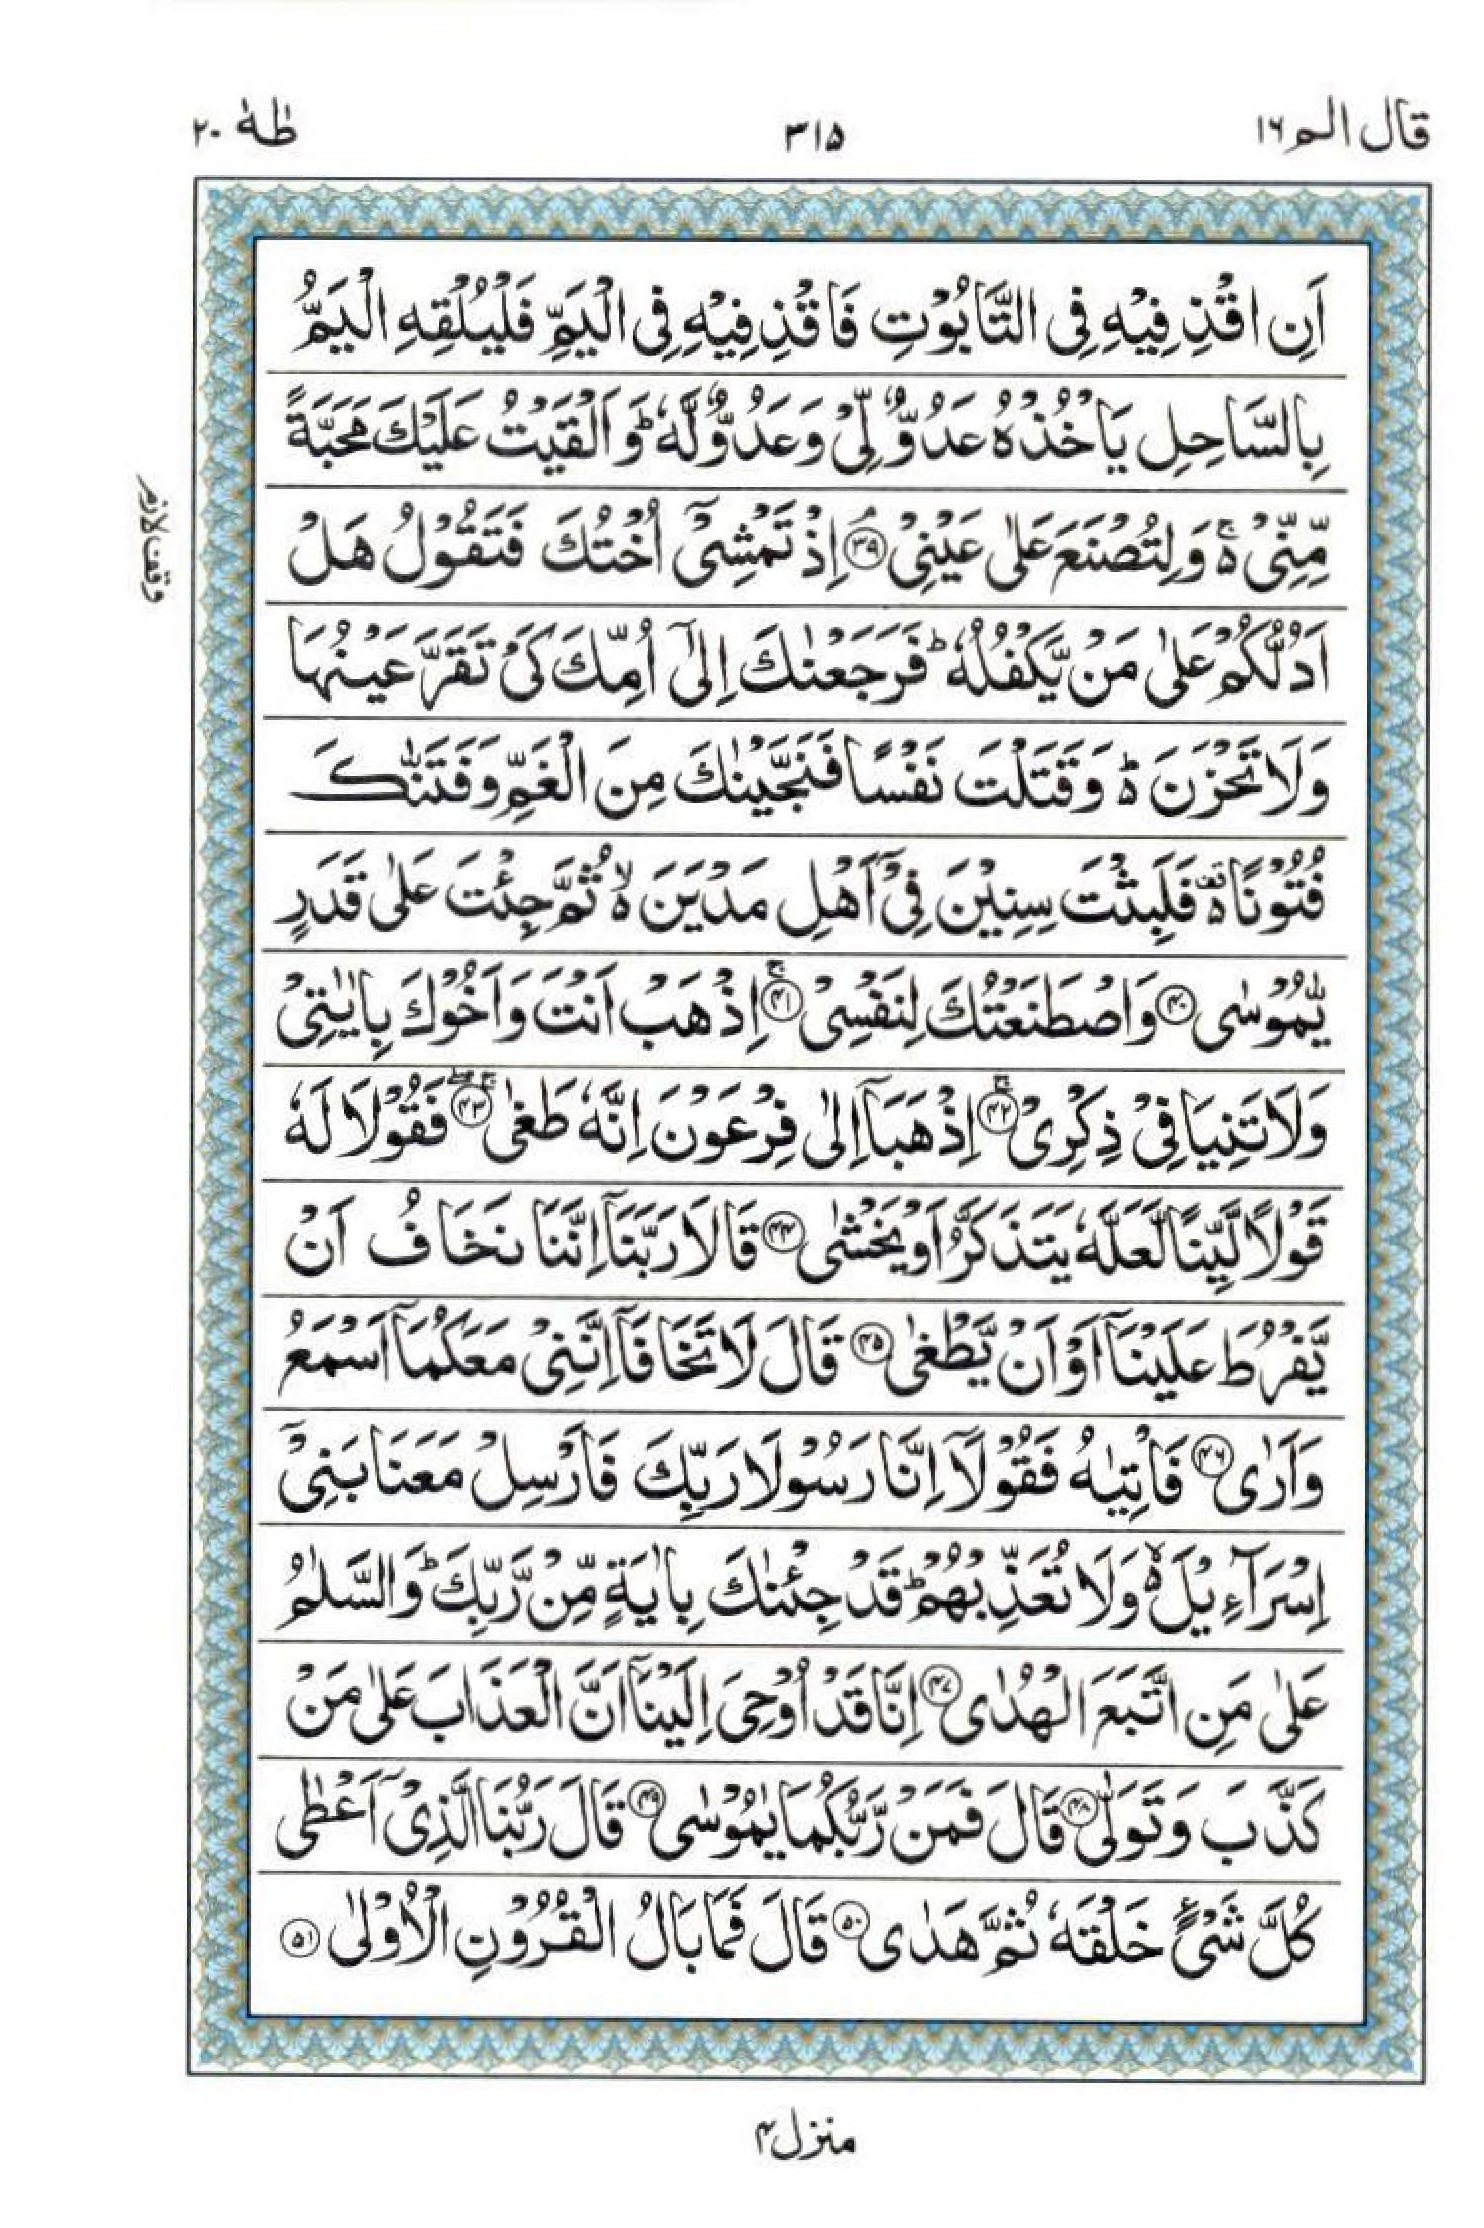 قال الم ١٦
٣١٥
طٰهٰ ٢٠
اَنِ اقْذِفِيْهِ فِى التَّابُوْتِ فَاقْذِفِيْهِ فِى الْيَمِّ فَلْيُلْقِهِ الْيَمُّ
بِالسَّاحِلِ يَاْخُذْهُ عَدُوٌّ لِّىْ وَعَدُوٌّ لَّهٗ ؕ وَاَلْقَيْتُ عَلَيْكَ مَحَبَّةً
مِّنِّىْ ۚ۬ وَلِتُصْنَعَ عَلٰى عَيْنِىْ ۘ﴿۳۹﴾ اِذْ تَمْشِىْۤ اُخْتُكَ فَتَقُوْلُ هَلْ
اَدُلُّكُمْ عَلٰى مَنْ يَّكْفُلُهٗ ؕ فَرَجَعْنٰكَ اِلٰٓى اُمِّكَ كَىْ تَقَرَّ عَيْنُهَا
وَلَا تَحْزَنَ ؕ۬ وَقَتَلْتَ نَفْسًا فَنَجَّيْنٰكَ مِنَ الْغَمِّ وَفَتَنّٰكَ
فُتُوْنًا ۫۬ فَلَبِثْتَ سِنِيْنَ فِىْۤ اَهْلِ مَدْيَنَ ۙ۬ ثُمَّ جِئْتَ عَلٰى قَدَرٍ
يّٰمُوْسٰى ﴿۴۰﴾ وَاصْطَنَعْتُكَ لِنَفْسِىْ ۚ﴿۴۱﴾ اِذْهَبْ اَنْتَ وَاَخُوْكَ بِاٰيٰتِىْ
وَلَا تَنِيَا فِىْ ذِكْرِىْ ۚ﴿۴۲﴾ اِذْهَبَاۤ اِلٰى فِرْعَوْنَ اِنَّهٗ طَغٰى ۚۖ﴿۴۳﴾ فَقُوْلَا لَهٗ
قَوْلًا لَّيِّنًا لَّعَلَّهٗ يَتَذَكَّرُ اَوْ يَخْشٰى ﴿۴۴﴾ قَالَا رَبَّنَاۤ اِنَّنَا نَخَافُ اَنْ
يَّفْرُطَ عَلَيْنَاۤ اَوْ اَنْ يَّطْغٰى ﴿۴۵﴾ قَالَ لَا تَخَافَاۤ اِنَّنِىْ مَعَكُمَاۤ اَسْمَعُ
وَاَرٰى ﴿۴۶﴾ فَاْتِيٰهُ فَقُوْلَاۤ اِنَّا رَسُوْلَا رَبِّكَ فَاَرْسِلْ مَعَنَا بَنِىْۤ
اِسْرَآءِيْلَ ۙ۬ وَلَا تُعَذِّبْهُمْ ؕ قَدْ جِئْنٰكَ بِاٰيَةٍ مِّنْ رَّبِّكَ ؕ وَالسَّلٰمُ
عَلٰى مَنِ اتَّبَعَ الْهُدٰى ﴿۴۷﴾ اِنَّا قَدْ اُوْحِىَ اِلَيْنَاۤ اَنَّ الْعَذَابَ عَلٰى مَنْ
كَذَّبَ وَتَوَلّٰى ﴿۴۸﴾ قَالَ فَمَنْ رَّبُّكُمَا يٰمُوْسٰى ﴿۴۹﴾ قَالَ رَبُّنَا الَّذِىْۤ اَعْطٰى
كُلَّ شَىْءٍ خَلْقَهٗ ثُمَّ هَدٰى ﴿۵۰﴾ قَالَ فَمَا بَالُ الْقُرُوْنِ الْاُوْلٰى ﴿۵۱﴾
وقف لازم
منزل ۴